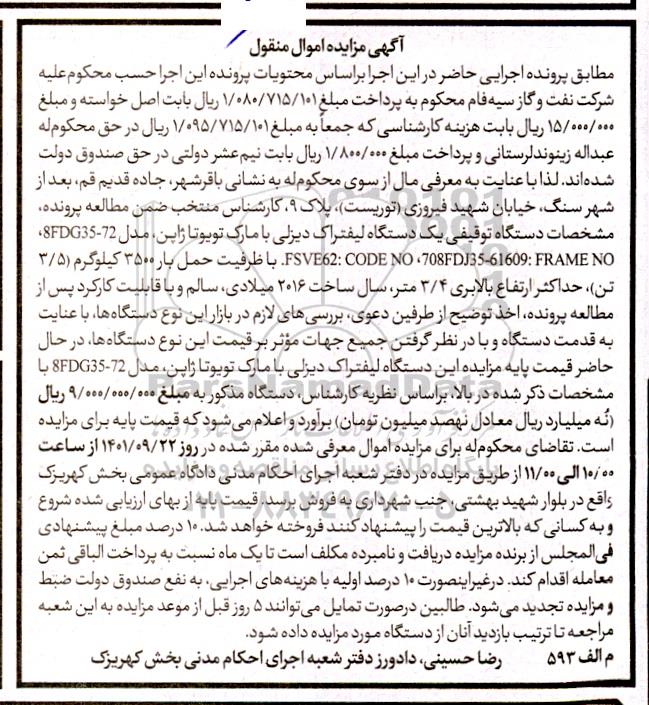 آگهی مزایده اموال منقول
مطابق پرونده اجرایی حاضر در این اجرا براساس محتویات پرونده این اجرا حسب محکوم‌علیه
شرکت نفت و گاز سیه‌فام محکوم به پرداخت مبلغ ۱/۰۸۰/۷۱۵/۱۰۱ ریال بابت اصل خواسته و مبلغ
۱۵/۰۰۰/۰۰۰ ریال بابت هزینه کارشناسی که جمعاً به مبلغ ۱/۰۹۵/۷۱۵/۱۰۱ ریال در حق محکوم‌له
عبداله زینوندلرستانی و پرداخت مبلغ ۱/۸۰۰/۰۰۰ ریال بابت نیم‌عشر دولتی در حق صندوق دولت
شده‌اند. لذا با عنایت به معرفی مال از سوی محکوم‌له به نشانی باقرشهر، جاده قدیم قم، بعد از
شهر سنگ، خیابان شهید فیروزی (توریست)، پلاک ۹، کارشناس منتخب ضمن مطالعه پرونده،
مشخصات دستگاه توقیفی یک دستگاه لیفتراک دیزلی با مارک تویوتا ژاپن، مدل 8FDG35-72،
708FDJ35-61609: FRAME NO، FSVE62: CODE NO. با ظرفیت حمل بار ۳۵۰۰ کیلوگرم (۳/۵
تن)، حداکثر ارتفاع بالابری ۳/۴ متر، سال ساخت ۲۰۱۶ میلادی، سالم و با قابلیت کارکرد پس از
مطالعه پرونده، اخذ توضیح از طرفین دعوی، بررسی‌های لازم در بازار این نوع دستگاه‌ها، با عنایت
به قدمت دستگاه و با در نظر گرفتن جمیع جهات مؤثر بر قیمت این نوع دستگاه‌ها، در حال
حاضر قیمت پایه مزایده این دستگاه لیفتراک دیزلی با مارک تویوتا ژاپن، مدل 8FDG35-72 با
مشخصات ذکر شده در بالا، براساس نظریه کارشناس، دستگاه مذکور به مبلغ ۹/۰۰۰/۰۰۰/۰۰۰ ریال
(نُه میلیارد ریال معادل نهصد میلیون تومان) برآورد و اعلام می‌شود که قیمت پایه برای مزایده
است. تقاضای محکوم‌له برای مزایده اموال معرفی شده مقرر شده در روز ۱۴۰۱/۰۹/۲۲ از ساعت
۱۰/۰۰ الی ۱۱/۰۰ از طریق مزایده در دفتر شعبه اجرای احکام مدنی دادگاه عمومی بخش کهریزک
واقع در بلوار شهید بهشتی، جنب شهرداری به فروش برسد. قیمت پایه از بهای ارزیابی شده شروع
و به کسانی که بالاترین قیمت را پیشنهاد کنند فروخته خواهد شد. ۱۰ درصد مبلغ پیشنهادی
فی‌المجلس از برنده مزایده دریافت و نامبرده مکلف است تا یک ماه نسبت به پرداخت الباقی ثمن
معامله اقدام کند. درغیراینصورت ۱۰ درصد اولیه با هزینه‌های اجرایی، به نفع صندوق دولت ضبط
و مزایده تجدید می‌شود. طالبین درصورت تمایل می‌توانند ۵ روز قبل از موعد مزایده به این شعبه
مراجعه تا ترتیب بازدید آنان از دستگاه مورد مزایده داده شود.
م الف ۵۹۳ رضا حسینی، دادورز دفتر شعبه اجرای احکام مدنی بخش کهریزک
ParsNamadData